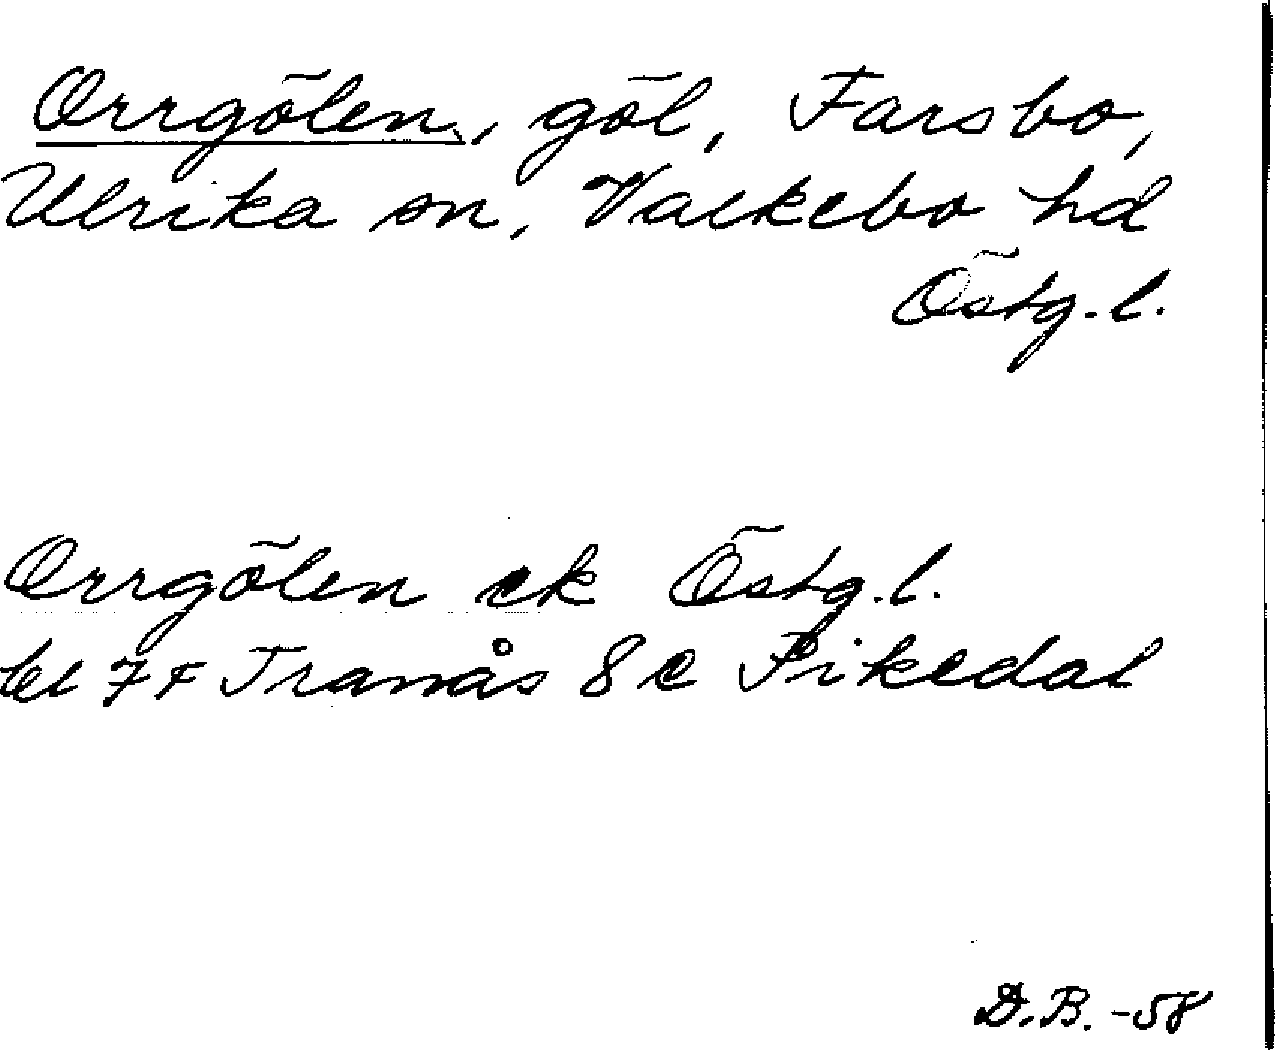 Orrgölen, göl, Farsbo,
Ulrika sn, Valkebo hd
Östg. l.
Orrgölen ek Östg. l.
bl 7 F Tranås 8 c Fikedal
D.B. -58